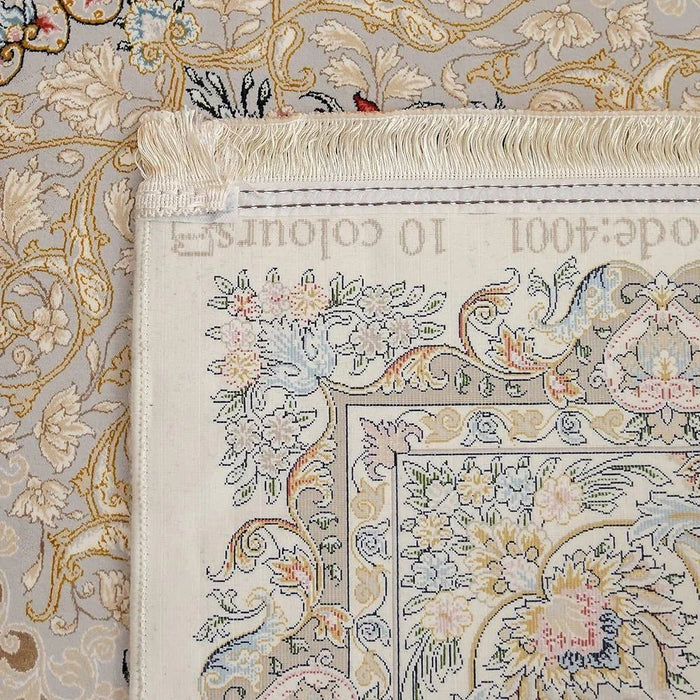 ode:4001 10 colours